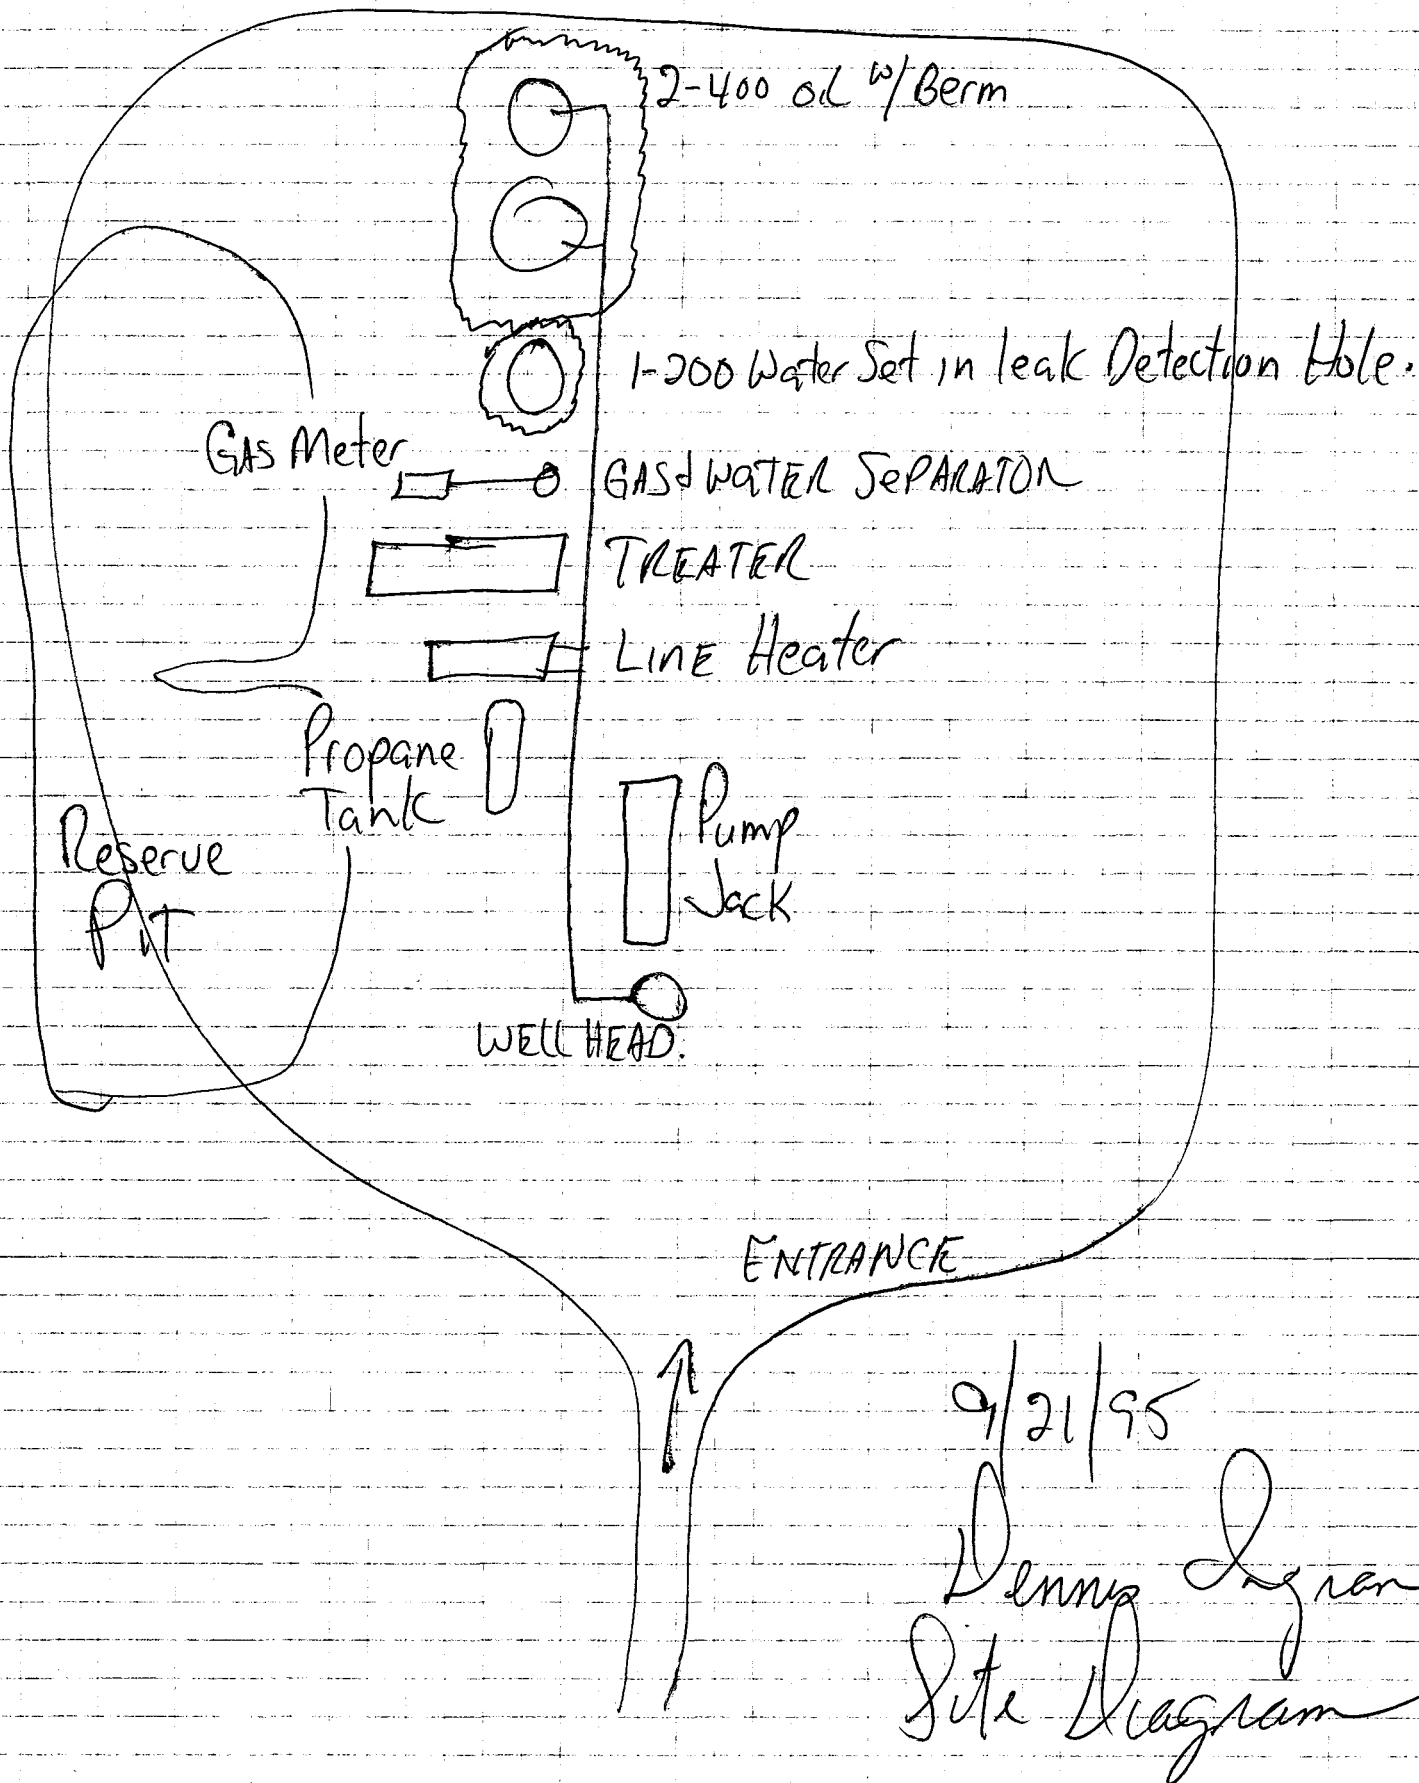 2-400 oil w/ Berm
1-200 Water Set in leak Detection Hole.
GAS Meter
GAS & WATER SEPARATOR
TREATER
LINE Heater
Propane
Tank
Pump
Jack
Reserve
PIT
WELL HEAD.
ENTRANCE
9/21/95
Dennis Ingram
Site Diagram